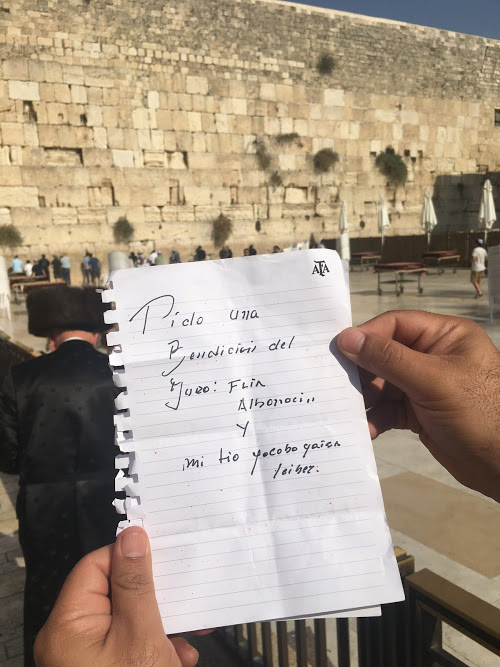 ATA
Pido una
Bendición del
Muro: Flia
Albonoci
y
mi tio yacobo gaien
leiber.